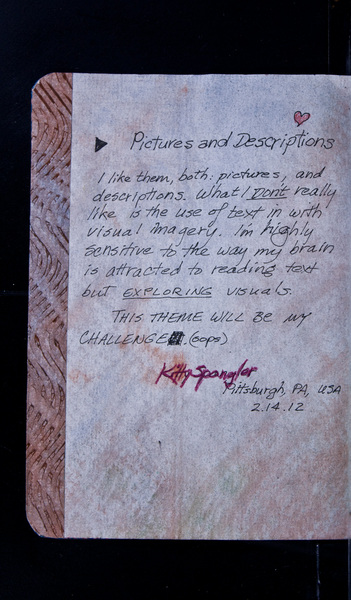 Pictures and Descriptions
I like them, both: pictures, and
descriptions. What I DON'T really
like is the use of text in with
visual imagery. I'm highly
sensitive to the way my brain
is attracted to reading text
but EXPLORING visuals.
THIS THEME WILL BE MY
CHALLENGE. (oops)
Kitty Spangler
Pittsburgh, PA, USA
2.14.12